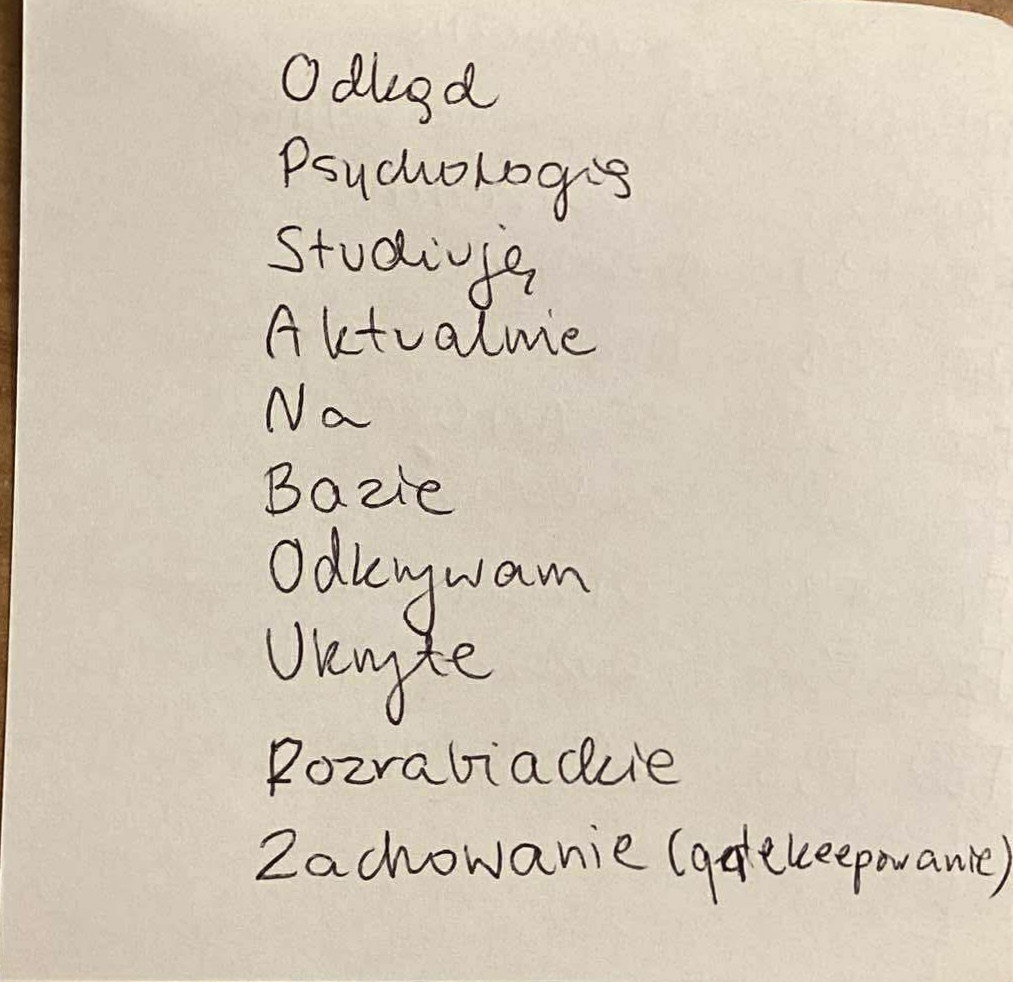 Odkąd
Psychologię
Studiuję
Aktualnie
Na
Bazie
Odkrywam
Ukryte
Rozrabiackie
Zachowanie (gatekeepowanie)